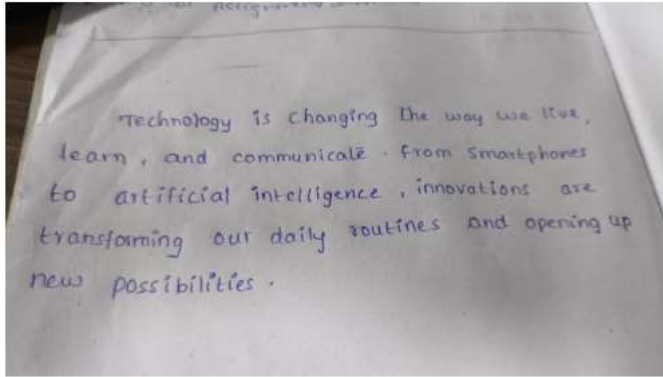 Technology is changing the way we live,
learn, and communicate. From Smartphones
to artificial intelligence, innovations are
transforming our daily routines and opening up
new possibilities.